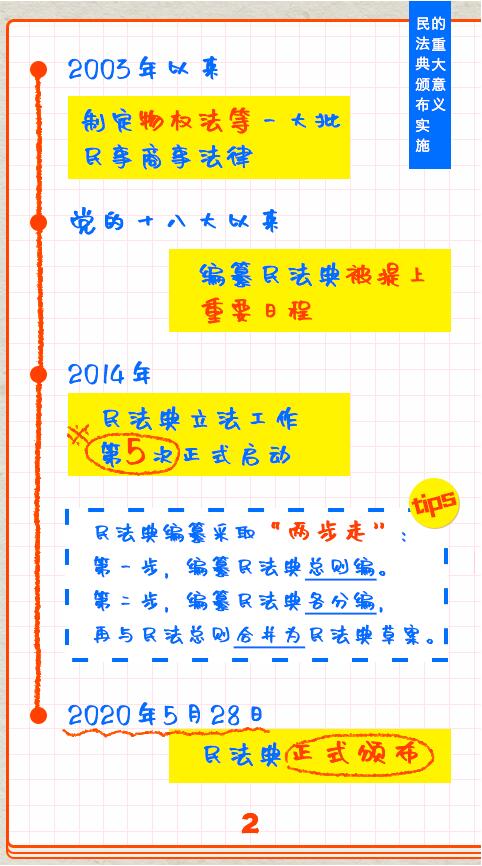 民法典颁布实施
的重大意义
2003年以来
制定物权法等一大批
民事商事法律
党的十八大以来
编纂民法典被提上
重要日程
2014年
民法典立法工作
第5次正式启动
tips
民法典编纂采取“两步走”：
第一步，编纂民法典总则编。
第二步，编纂民法典各分编，
再与民法总则合并为民法典草案。
2020年5月28日
民法典正式颁布
2